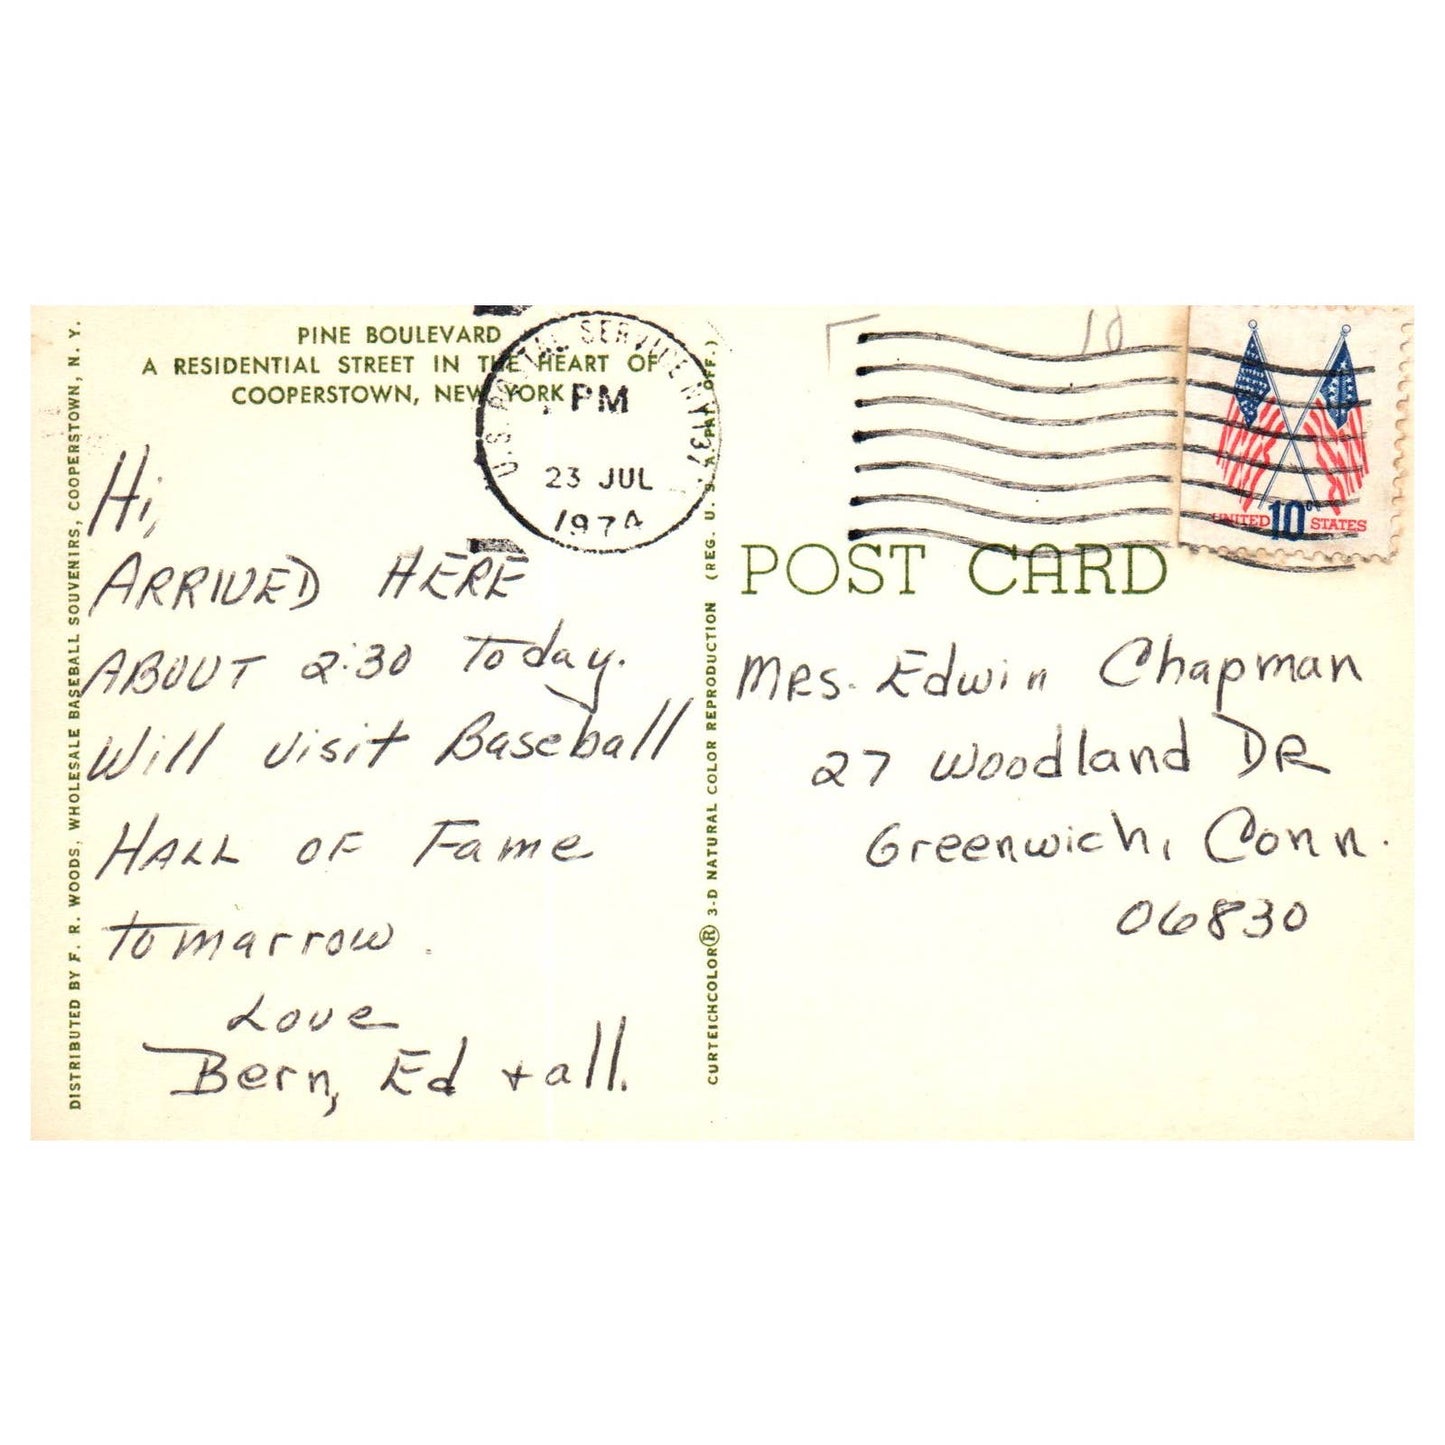 PINE BOULEVARD
A RESIDENTIAL STREET IN THE HEART OF
COOPERSTOWN, NEW YORK
DISTRIBUTED BY F. R. WOODS, WHOLESALE BASEBALL SOUVENIRS, COOPERSTOWN, N. Y.
U.S. POSTAL SERVICE NY 137
PM
23 JUL
1974
Hi,
ARRIVED HERE
ABOUT 2:30 Today.
Will visit Baseball
HALL OF Fame
tomarrow.
Love
Bern, Ed + all.
CURTEICHCOLOR® 3-D NATURAL COLOR REPRODUCTION (REG. U. S. A. PAT. OFF.)
10
UNITED 10c STATES
POST CARD
MRS. Edwin Chapman
27 Woodland DR
Greenwich, Conn.
06830